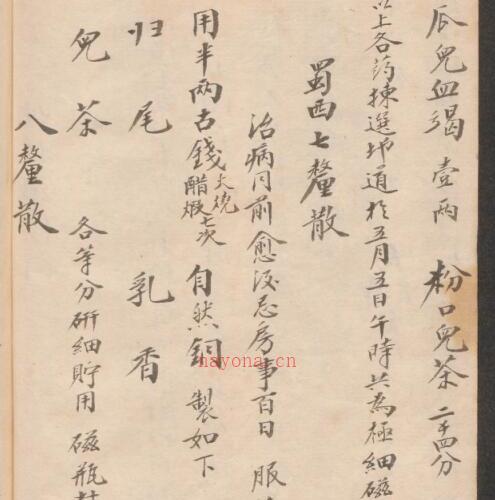 瓜兒血竭 壹兩 粉口兒茶 二𠦑四分
以上各药揀選地道於五月五日午時共為極細磁
蜀西七釐散
治病同前愈後忌房事百日 服
用半兩古錢火燒醋煅七次 自然铜製如下
归尾 乳香
兒茶 各等分研細貯用 磁瓶
八釐散
hayona.cn